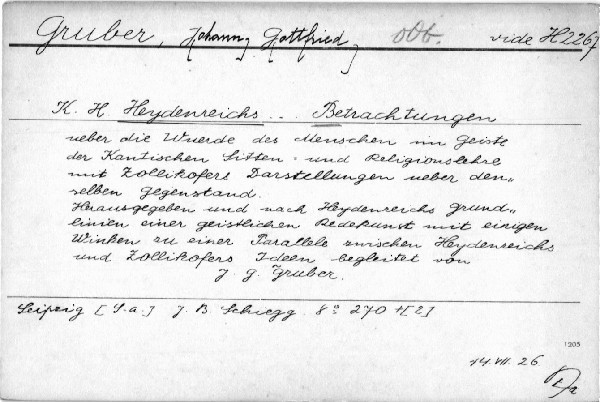 Gruber, Johann Gottfried, vide H2267
K. H. Heydenreichs .. Betrachtungen
ueber die Wuerde des Menschen im Geiste
der Kantischen Sitten- und Religionslehre
mit Zollikofers Darstellungen ueber den„
selben Gegenstand.
Herausgegeben und nach Heydenreichs Grund„
linien einer geistlichen Redekunst mit einigen
Winken zu einer Parallele zwischen Heydenreichs
und Zollikofers Ideen begleitet von
J. G. Gruber.
Leipzig [S.a.] J. B. Schiegg 8° 270 +[2]
1205
14 VII. 26